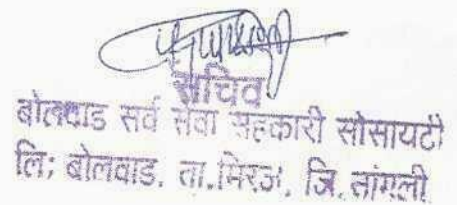 सचिव
बोलवाड सर्व सेवा सहकारी सोसायटी
लि; बोलवाड. ता.मिरज, जि.सांगली